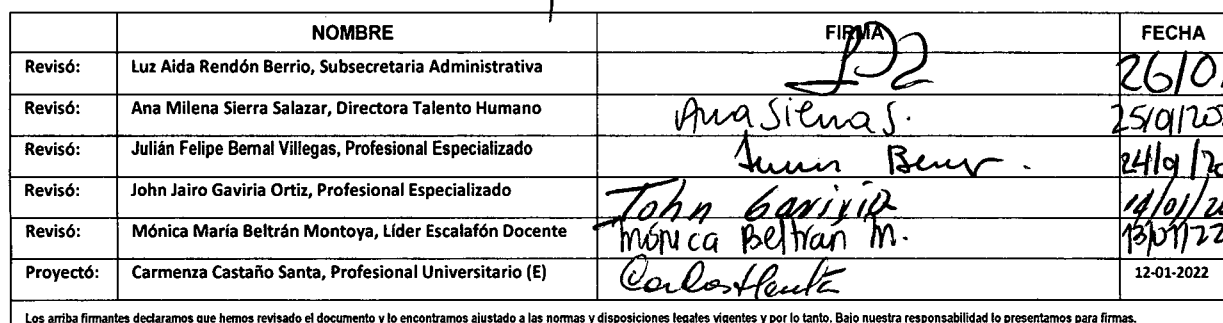 NOMBRE FIRMA FECHA
Revisó: Luz Aida Rendón Berrio, Subsecretaria Administrativa 26/0
Revisó: Ana Milena Sierra Salazar, Directora Talento Humano Ana Sierra S. 25/01/20
Revisó: Julián Felipe Bernal Villegas, Profesional Especializado 24/01/20
Revisó: John Jairo Gaviria Ortiz, Profesional Especializado John Gaviria 14/01/20
Revisó: Mónica María Beltrán Montoya, Líder Escalafón Docente Mónica Beltrán M. 13/01/22
Proyectó: Carmenza Castaño Santa, Profesional Universitario (E) 12-01-2022
Los arriba firmantes declaramos que hemos revisado el documento y lo encontramos ajustado a las normas y disposiciones legales vigentes y por lo tanto. Bajo nuestra responsabilidad lo presentamos para firmas.